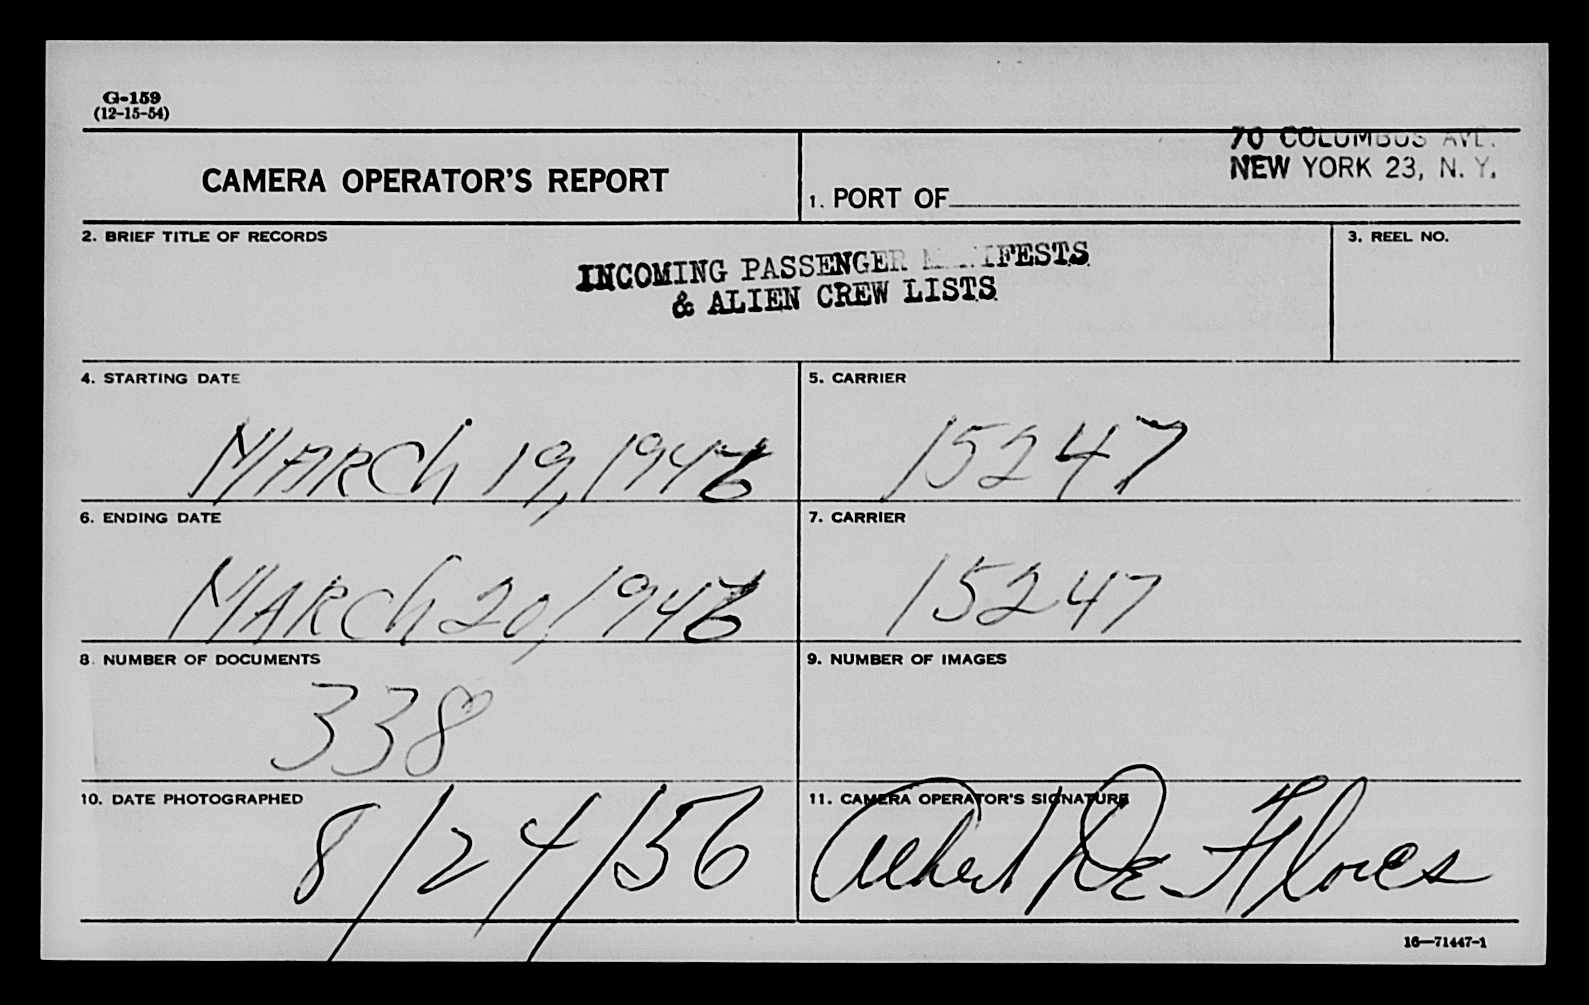 G-159
(12-15-54)
CAMERA OPERATOR'S REPORT
70 COLUMBUS AVE.
NEW YORK 23, N. Y.
1. PORT OF
2. BRIEF TITLE OF RECORDS
INCOMING PASSENGER MANIFESTS
& ALIEN CREW LISTS
3. REEL NO.
4. STARTING DATE
MARCh 19, 1946
5. CARRIER
15247
6. ENDING DATE
MARCh 20, 1946
7. CARRIER
15247
8. NUMBER OF DOCUMENTS
338
9. NUMBER OF IMAGES
10. DATE PHOTOGRAPHED
8/24/56
11. CAMERA OPERATOR'S SIGNATURE
Albert De Flores
16—71447-1